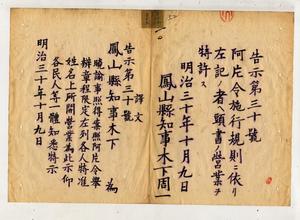 告示第三十號
阿片令施行規則ニ依リ
左記ノ者ヘ頭書ノ營業ヲ
特許ス
明治三十年十月九日
鳳山縣知事木下周一
譯文
告示第三十號
鳳山縣知事木下 為
曉諭事照得業照阿片令準
辨章程限定左列各人特准
姓名上所開營業為此示仰
各民人等一體知悉特示
明治三十年十月九日